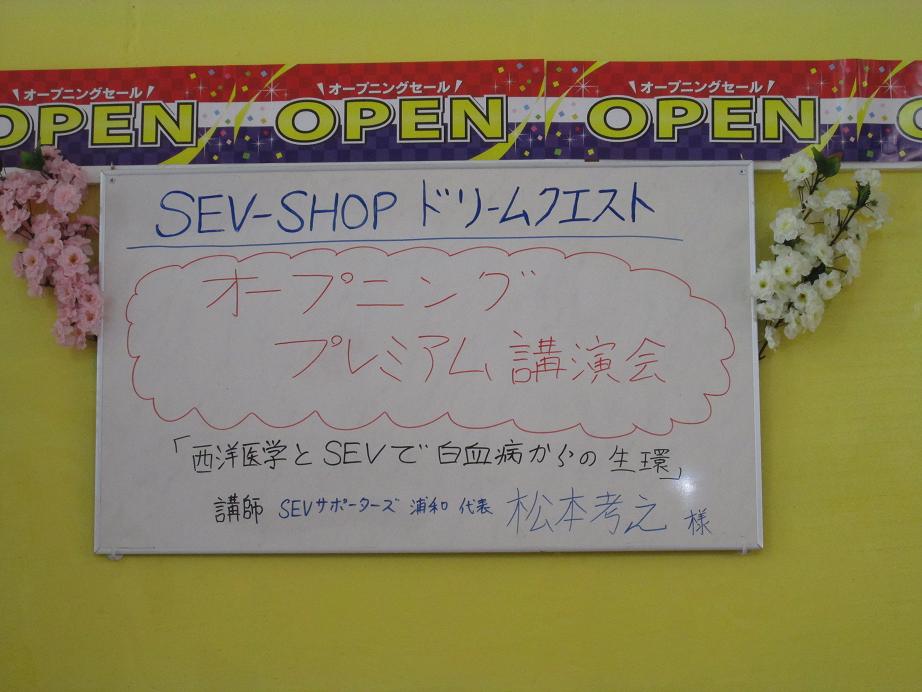 オープニングセール オープニングセール オープニングセール
OPEN OPEN OPEN
SEV-SHOP ドリームクエスト
オープニング
プレミアム講演会
「西洋医学とSEVで白血病からの生環」
講師 SEVサポーターズ 浦和 代表 松本考之 様